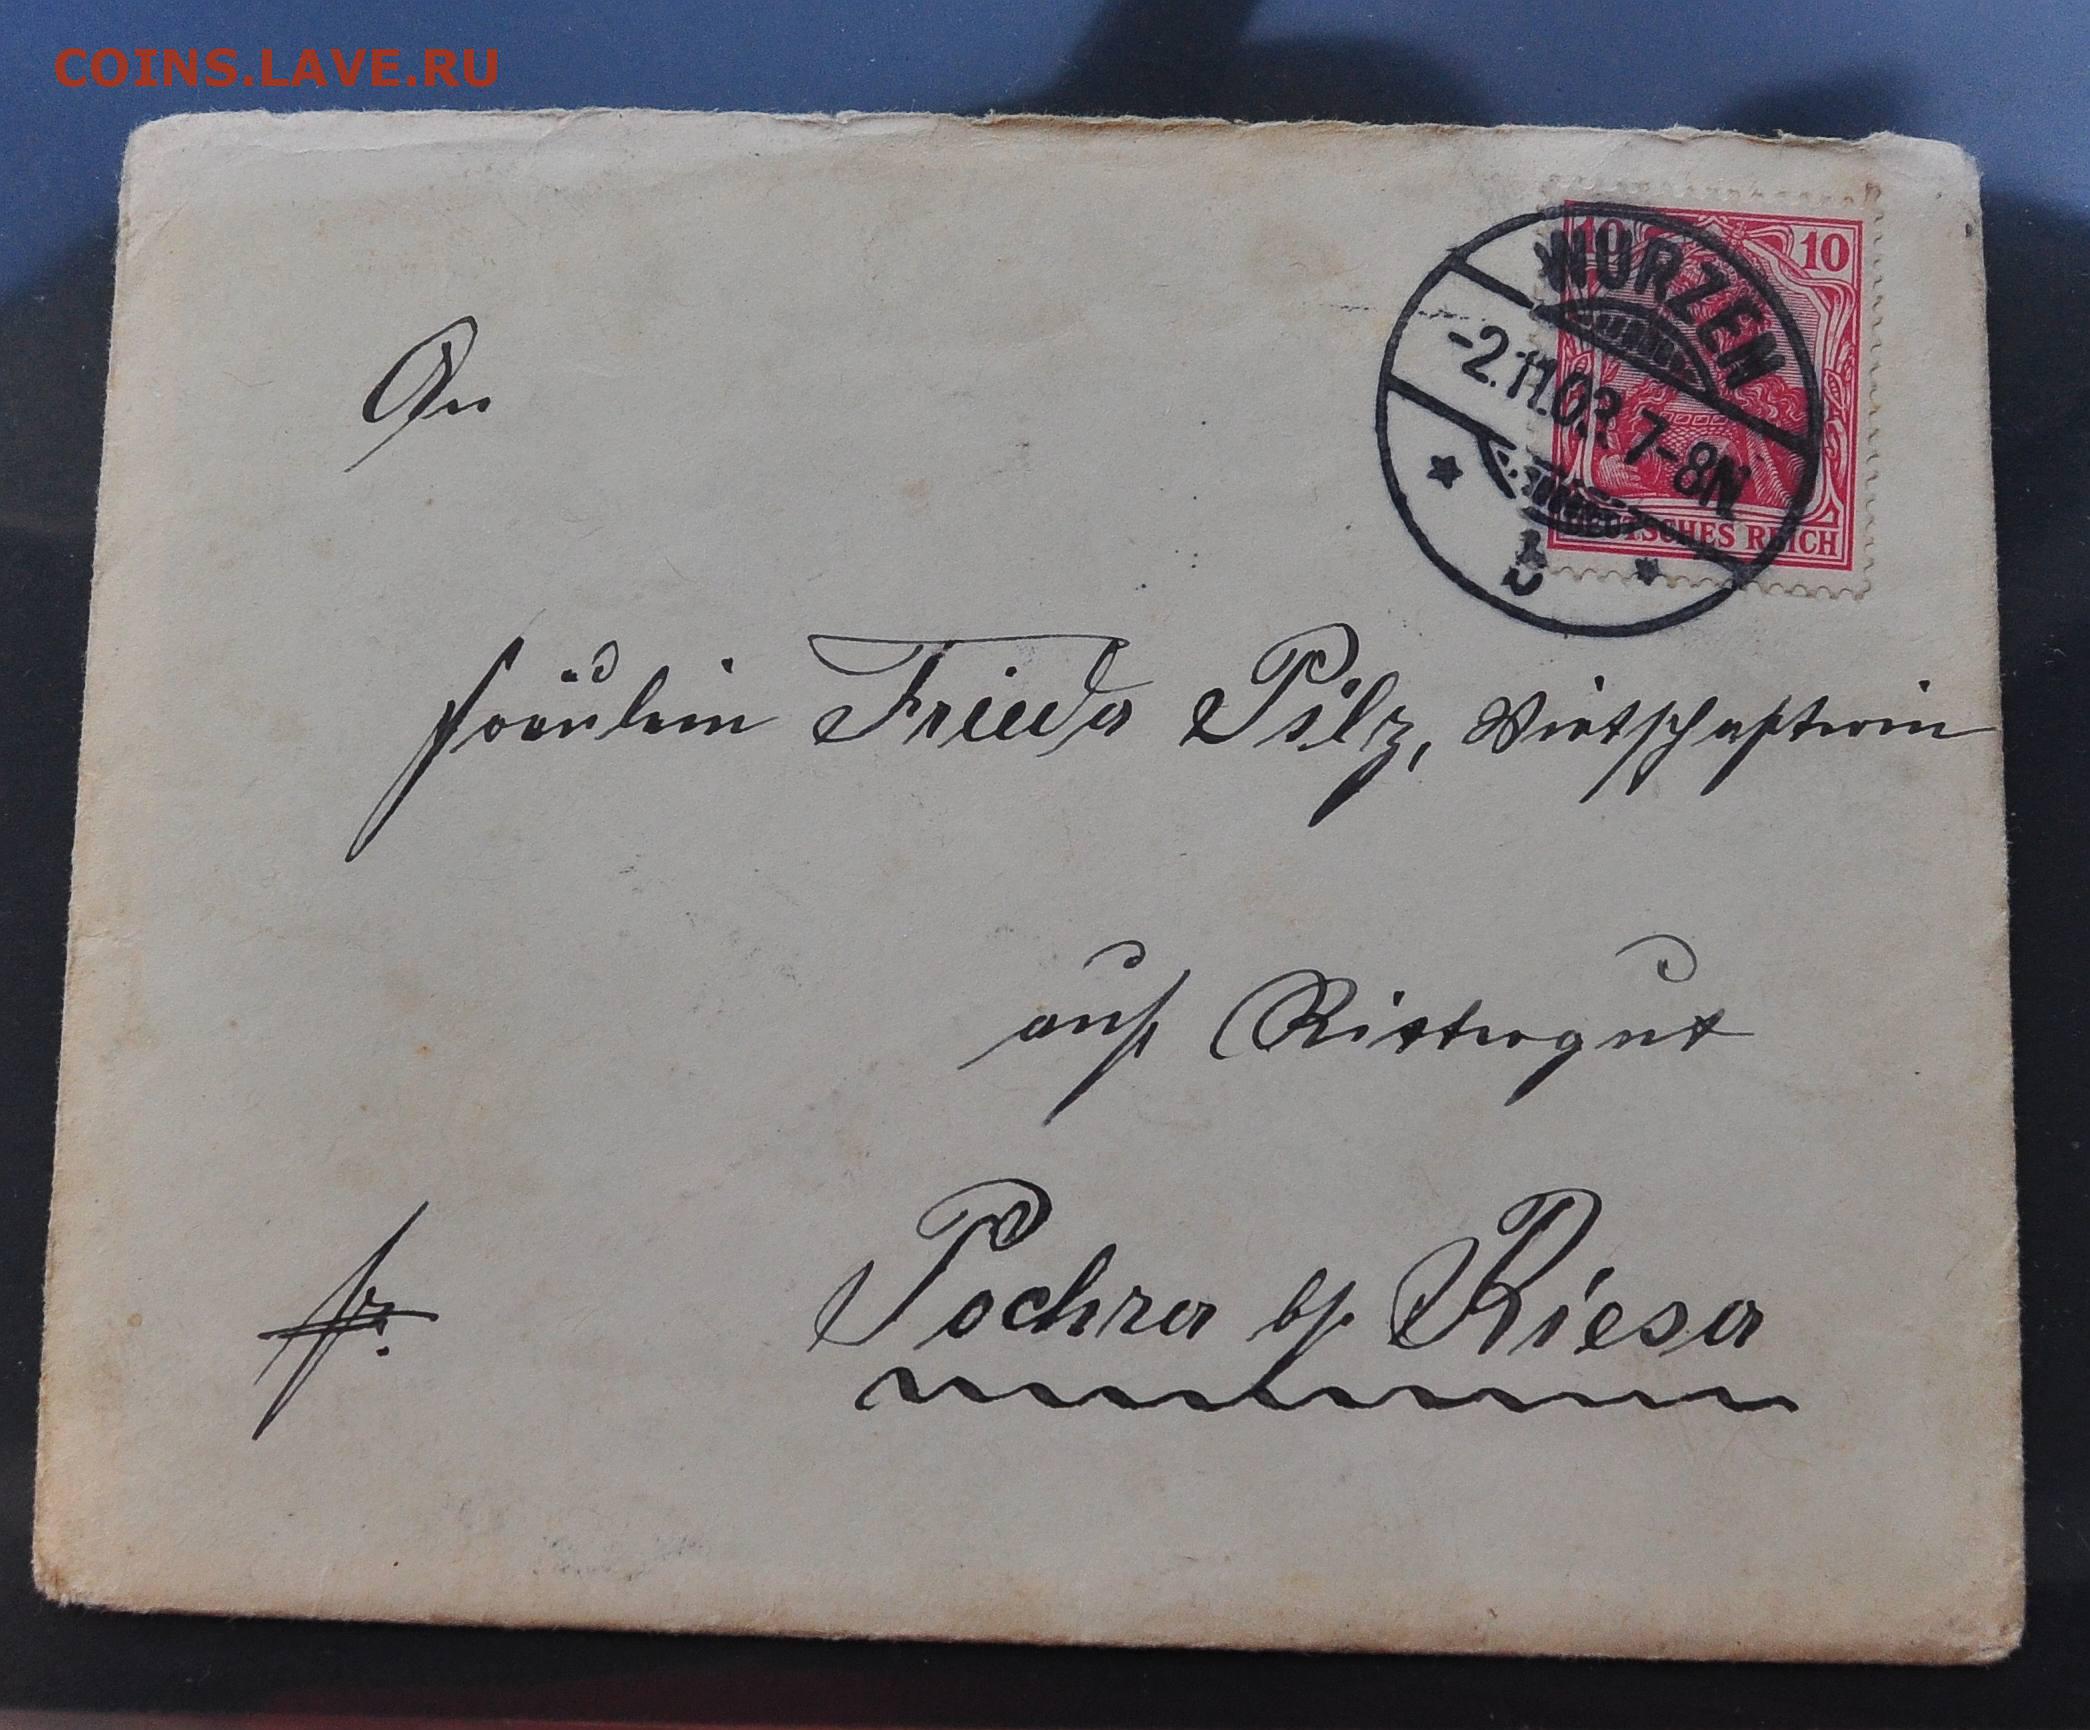 COINS.LAVE.RU
10 10
WURZEN
-2.11.03. 7-8N.
DEUTSCHES REICH
An
Fräulein Frieda Pilz, Wirtschafterin
auf Rittergut
fr.
Pochra b/. Riesa